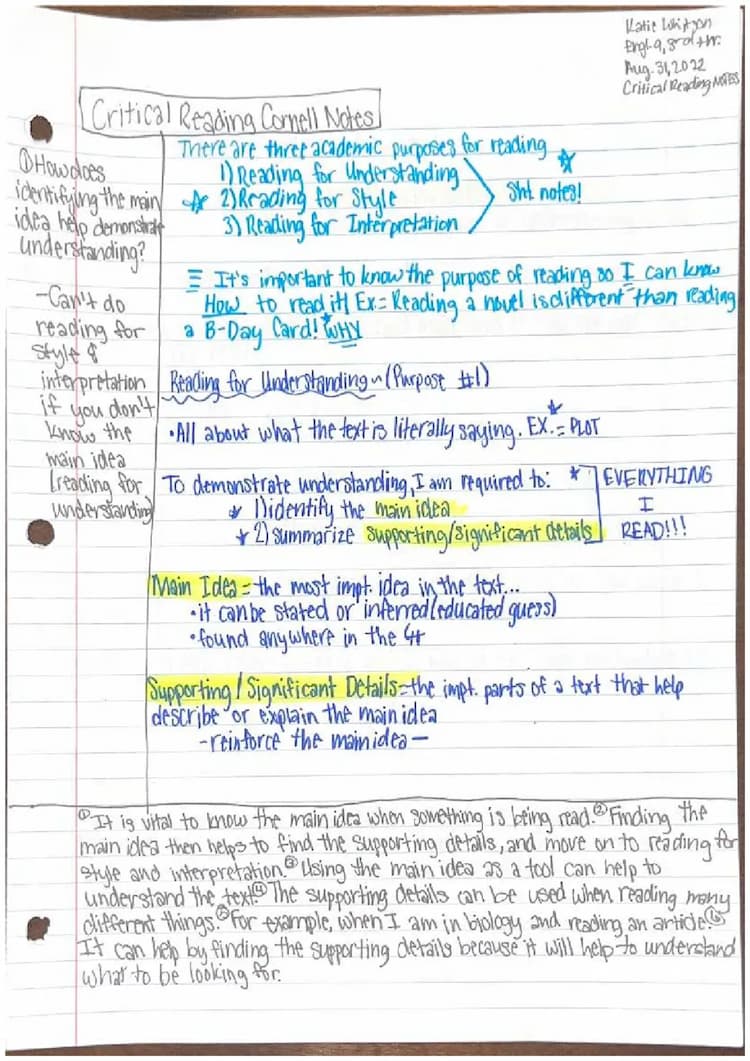 Katie
Engl. 9, 3rd
Aug. 31, 2022
Critical Reading NOTES
Critical Reading Cornell Notes
① How does
identifying the main
idea help demonstrate
understanding?
-Can't do
reading for
style &
interpretation
if you don't
know the
main idea
(reading for
understanding)
There are three academic purposes for reading
1) Reading for Understanding
2) Reading for Style
3) Reading for Interpretation
notes!
It's important to know the purpose of reading so I can know
How to read it! Ex.= Reading a novel is different than reading
a B-Day Card! WHY
Reading for Understanding ~ (Purpose #1)
•All about what the text is literally saying. EX.= PLOT
To demonstrate understanding, I am required to:
1) identify the main idea
2) summarize supporting/significant details
EVERYTHING
I
READ!!!
Main Idea = the most impt. idea in the text...
•it can be stated or inferred (educated guess)
•found anywhere in the
Supporting/Significant Details = the impt. parts of a text that help
describe or explain the main idea
-reinforce the main idea-
① It is vital to know the main idea when something is being read. ② Finding the
main idea then helps to find the supporting details, and move on to reading for
style and interpretation. ③ Using the main idea as a tool can help to
understand the text. ④ The supporting details can be used when reading many
different things. ⑤ For example, when I am in biology and reading an article. ⑥
It can help by finding the supporting details because it will help to understand
what to be looking for.